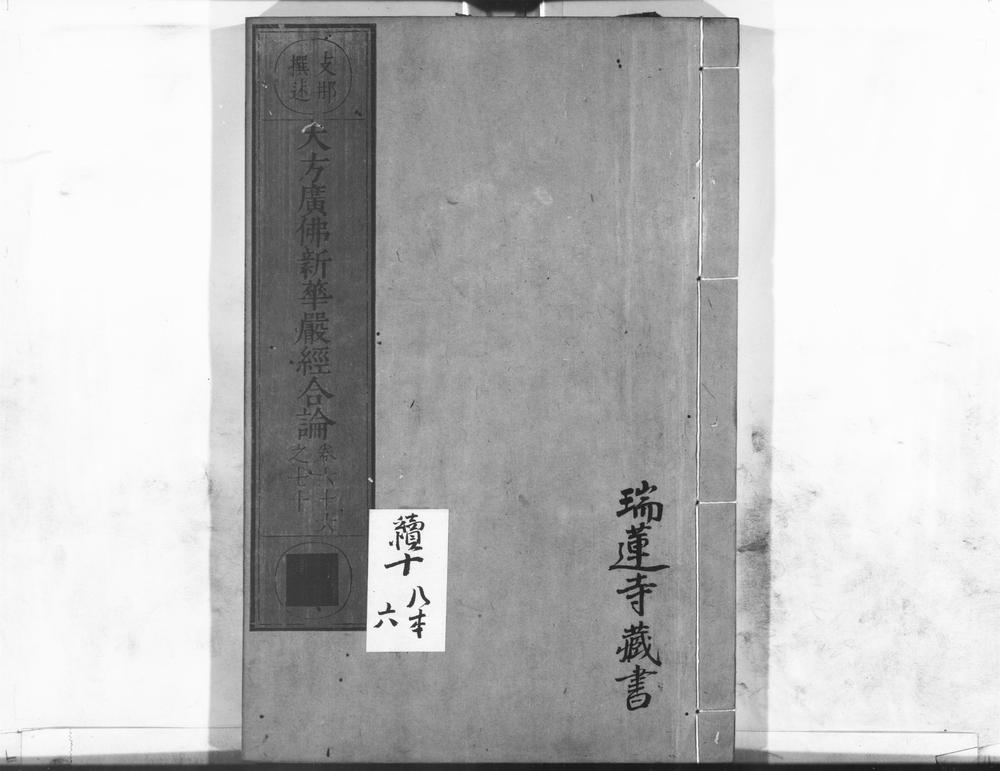 支那
撰述
大方廣佛新華嚴經合論
卷六十六
之七十
續十
八本
六
瑞蓮寺藏書